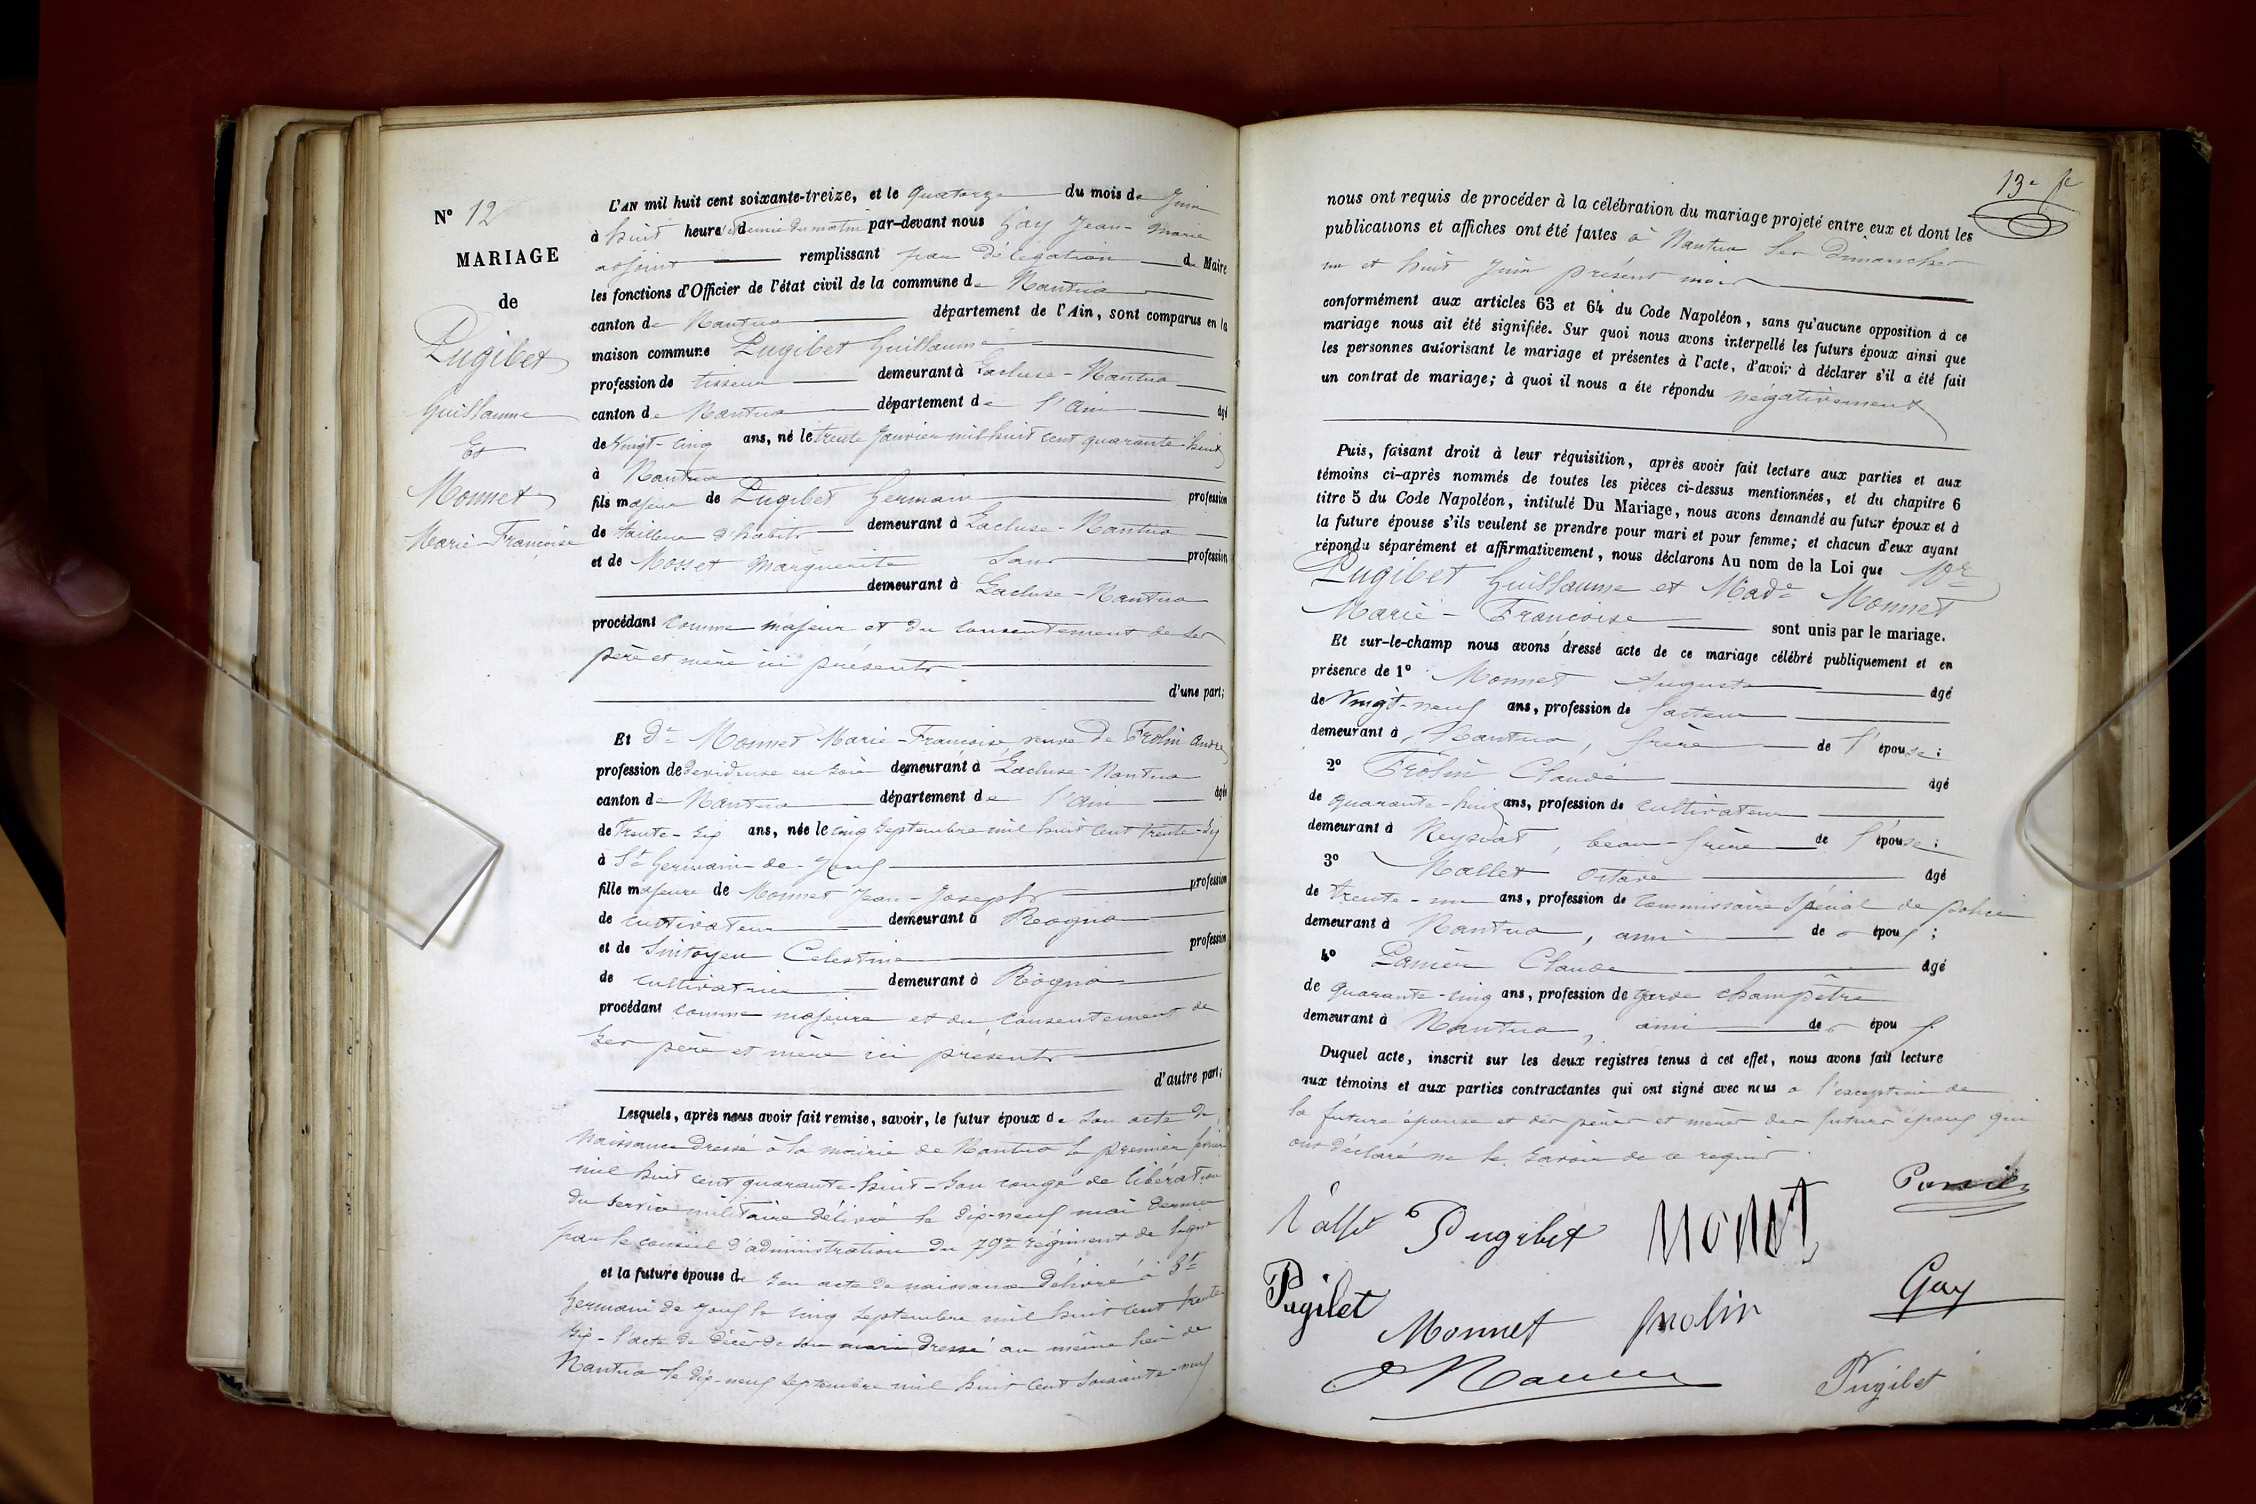 N° 12
MARIAGE
de
Pugibet
Guillaume
Et
Monnet
Marie-Françoise
L'AN mil huit cent soixante-treize, et le quatorze du mois de Juin
à huit heure et demie du matin par-devant nous Gay Jean-Marie
adjoint remplissant par délégation de Maire
les fonctions d'Officier de l'état civil de la commune de Nantua
canton de Nantua département de l'Ain, sont comparus en la
maison commune Pugibet Guillaume
profession de tisseur demeurant à Lacluse-Nantua
canton de Nantua département de l'Ain âgé
de vingt-cinq ans, né le trente Janvier mil huit cent quarante-huit
à Nantua
fils majeur de Pugibet Germain profession
de tailleur d'habits demeurant à Lacluse-Nantua
et de Mosset Marguerite Sans profession
demeurant à Lacluse-Nantua
procédant comme majeur et du consentement de ses
père et mère ici présents
d'une part;
Et De Monnet Marie-Françoise veuve de Frolin André
profession de dévideuse en soie demeurant à Lacluse-Nantua
canton de Nantua département de l'Ain âgée
de trente-six ans, née le cinq Septembre mil huit cent trente-six
à St Germain-de-Joux
fille majeure de Monnet Jean-Joseph profession
de cultivateur demeurant à Rogna
et de Célestine profession
de cultivatrice demeurant à Rogna
procédant comme majeure et du consentement de
ses père et mère ici présents
d'autre part;
Lesquels, après nous avoir fait remise, savoir, le futur époux de son acte de
naissance dressé à la mairie de Nantua le premier février
mil huit cent quarante-huit - son congé de libération
du service militaire délivré le dix-neuf mai dernier
par le conseil d'administration du 79e régiment de ligne
et la future épouse de son acte de naissance délivré à St
Germain de Joux le cinq Septembre mil huit cent trente
six - l'acte de décès de son mari dressé au même lieu de
Nantua le dix-neuf Septembre mil huit cent soixante-neuf
13e fe
nous ont requis de procéder à la célébration du mariage projeté entre eux et dont les
publications et affiches ont été faites à Nantua les Dimanches
un et huit Juin présent mois
conformément aux articles 63 et 64 du Code Napoléon, sans qu'aucune opposition à ce
mariage nous ait été signifiée. Sur quoi nous avons interpellé les futurs époux ainsi que
les personnes autorisant le mariage et présentes à l'acte, d'avoir à déclarer s'il a été fait
un contrat de mariage; à quoi il nous a été répondu négativement
Puis, faisant droit à leur réquisition, après avoir fait lecture aux parties et aux
témoins ci-après nommés de toutes les pièces ci-dessus mentionnées, et du chapitre 6
titre 5 du Code Napoléon, intitulé Du Mariage, nous avons demandé au futur époux et à
la future épouse s'ils veulent se prendre pour mari et pour femme; et chacun d'eux ayant
répondu séparément et affirmativement, nous déclarons Au nom de la Loi que Mr
Pugibet Guillaume et Made Monnet
Marie-Françoise sont unis par le mariage.
Et sur-le-champ nous avons dressé acte de ce mariage célébré publiquement et en
présence de 1° Monnet Auguste âgé
de vingt-neuf ans, profession de facteur
demeurant à Nantua, frère de l'épouse;
2° Frolin Claude âgé
de quarante-huit ans, profession de cultivateur
demeurant à Neyriat, beau-frère de l'épouse;
3° Octave âgé
de trente-un ans, profession de Commissaire Spécial de police
demeurant à Nantua, ami de époux;
4° Claude âgé
de quarante-cinq ans, profession de garde champêtre
demeurant à Nantua, ami de époux
Duquel acte, inscrit sur les deux registres tenus à cet effet, nous avons fait lecture
aux témoins et aux parties contractantes qui ont signé avec nous à l'exception de
la future épouse et des pères et mères des futurs époux qui
ont déclaré ne le savoir de ce requis.
Pugibet
Pugibet
Monnet
frolin
Gay
Pugibet